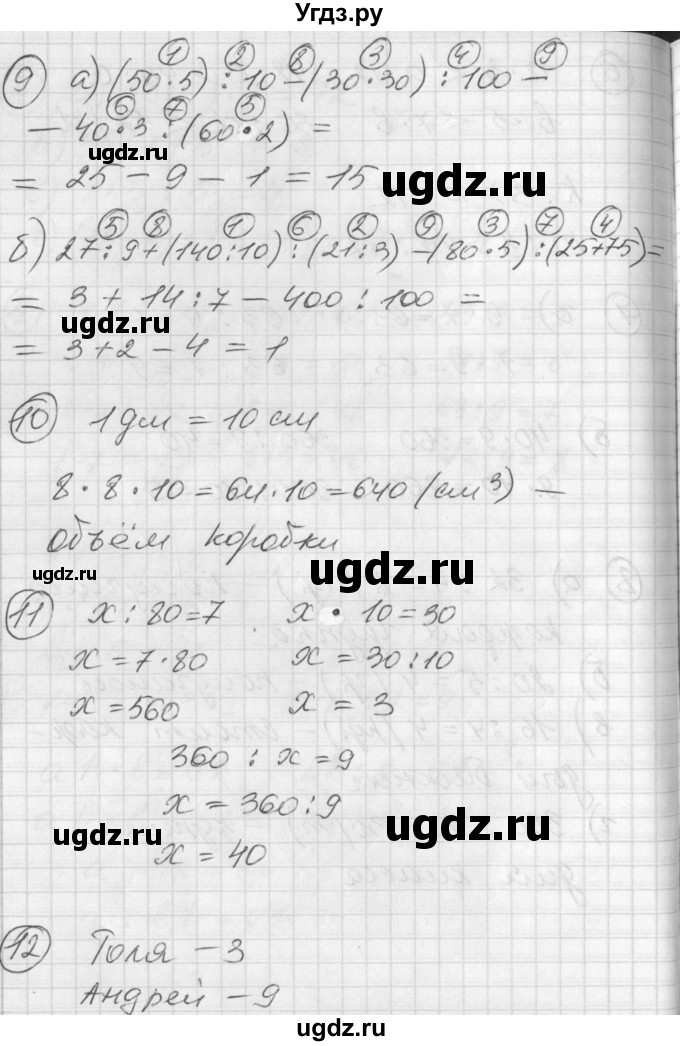 Угдз.ру
1 2 8 3 4 9
9 а) (50·5) : 10 – (30·30) : 100 –
6 7 5
– 40·3 : (60·2) =
ugdz.ru
= 25 – 9 – 1 = 15
ugdz.ru
5 8 1 6 2 9 3 7 4
б) 27:9+(140:10) : (21:3) –(80·5):(25+75)=
= 3 + 14:7 – 400 : 100 =
ugdz.ru
= 3+2 – 4 = 1
10 1 дм = 10 см
8·8·10=64·10=640 (см³) –
объём коробки
ugdz.ru
ugdz.ru
11 х : 80=7 х · 10=30
х = 7·80 х = 30:10
х =560 х = 3
360 : х =9
х = 360:9
ugdz.ru
ugdz.ru
х = 40
12 Толя – 3
Андрей – 9
ugdz.ru